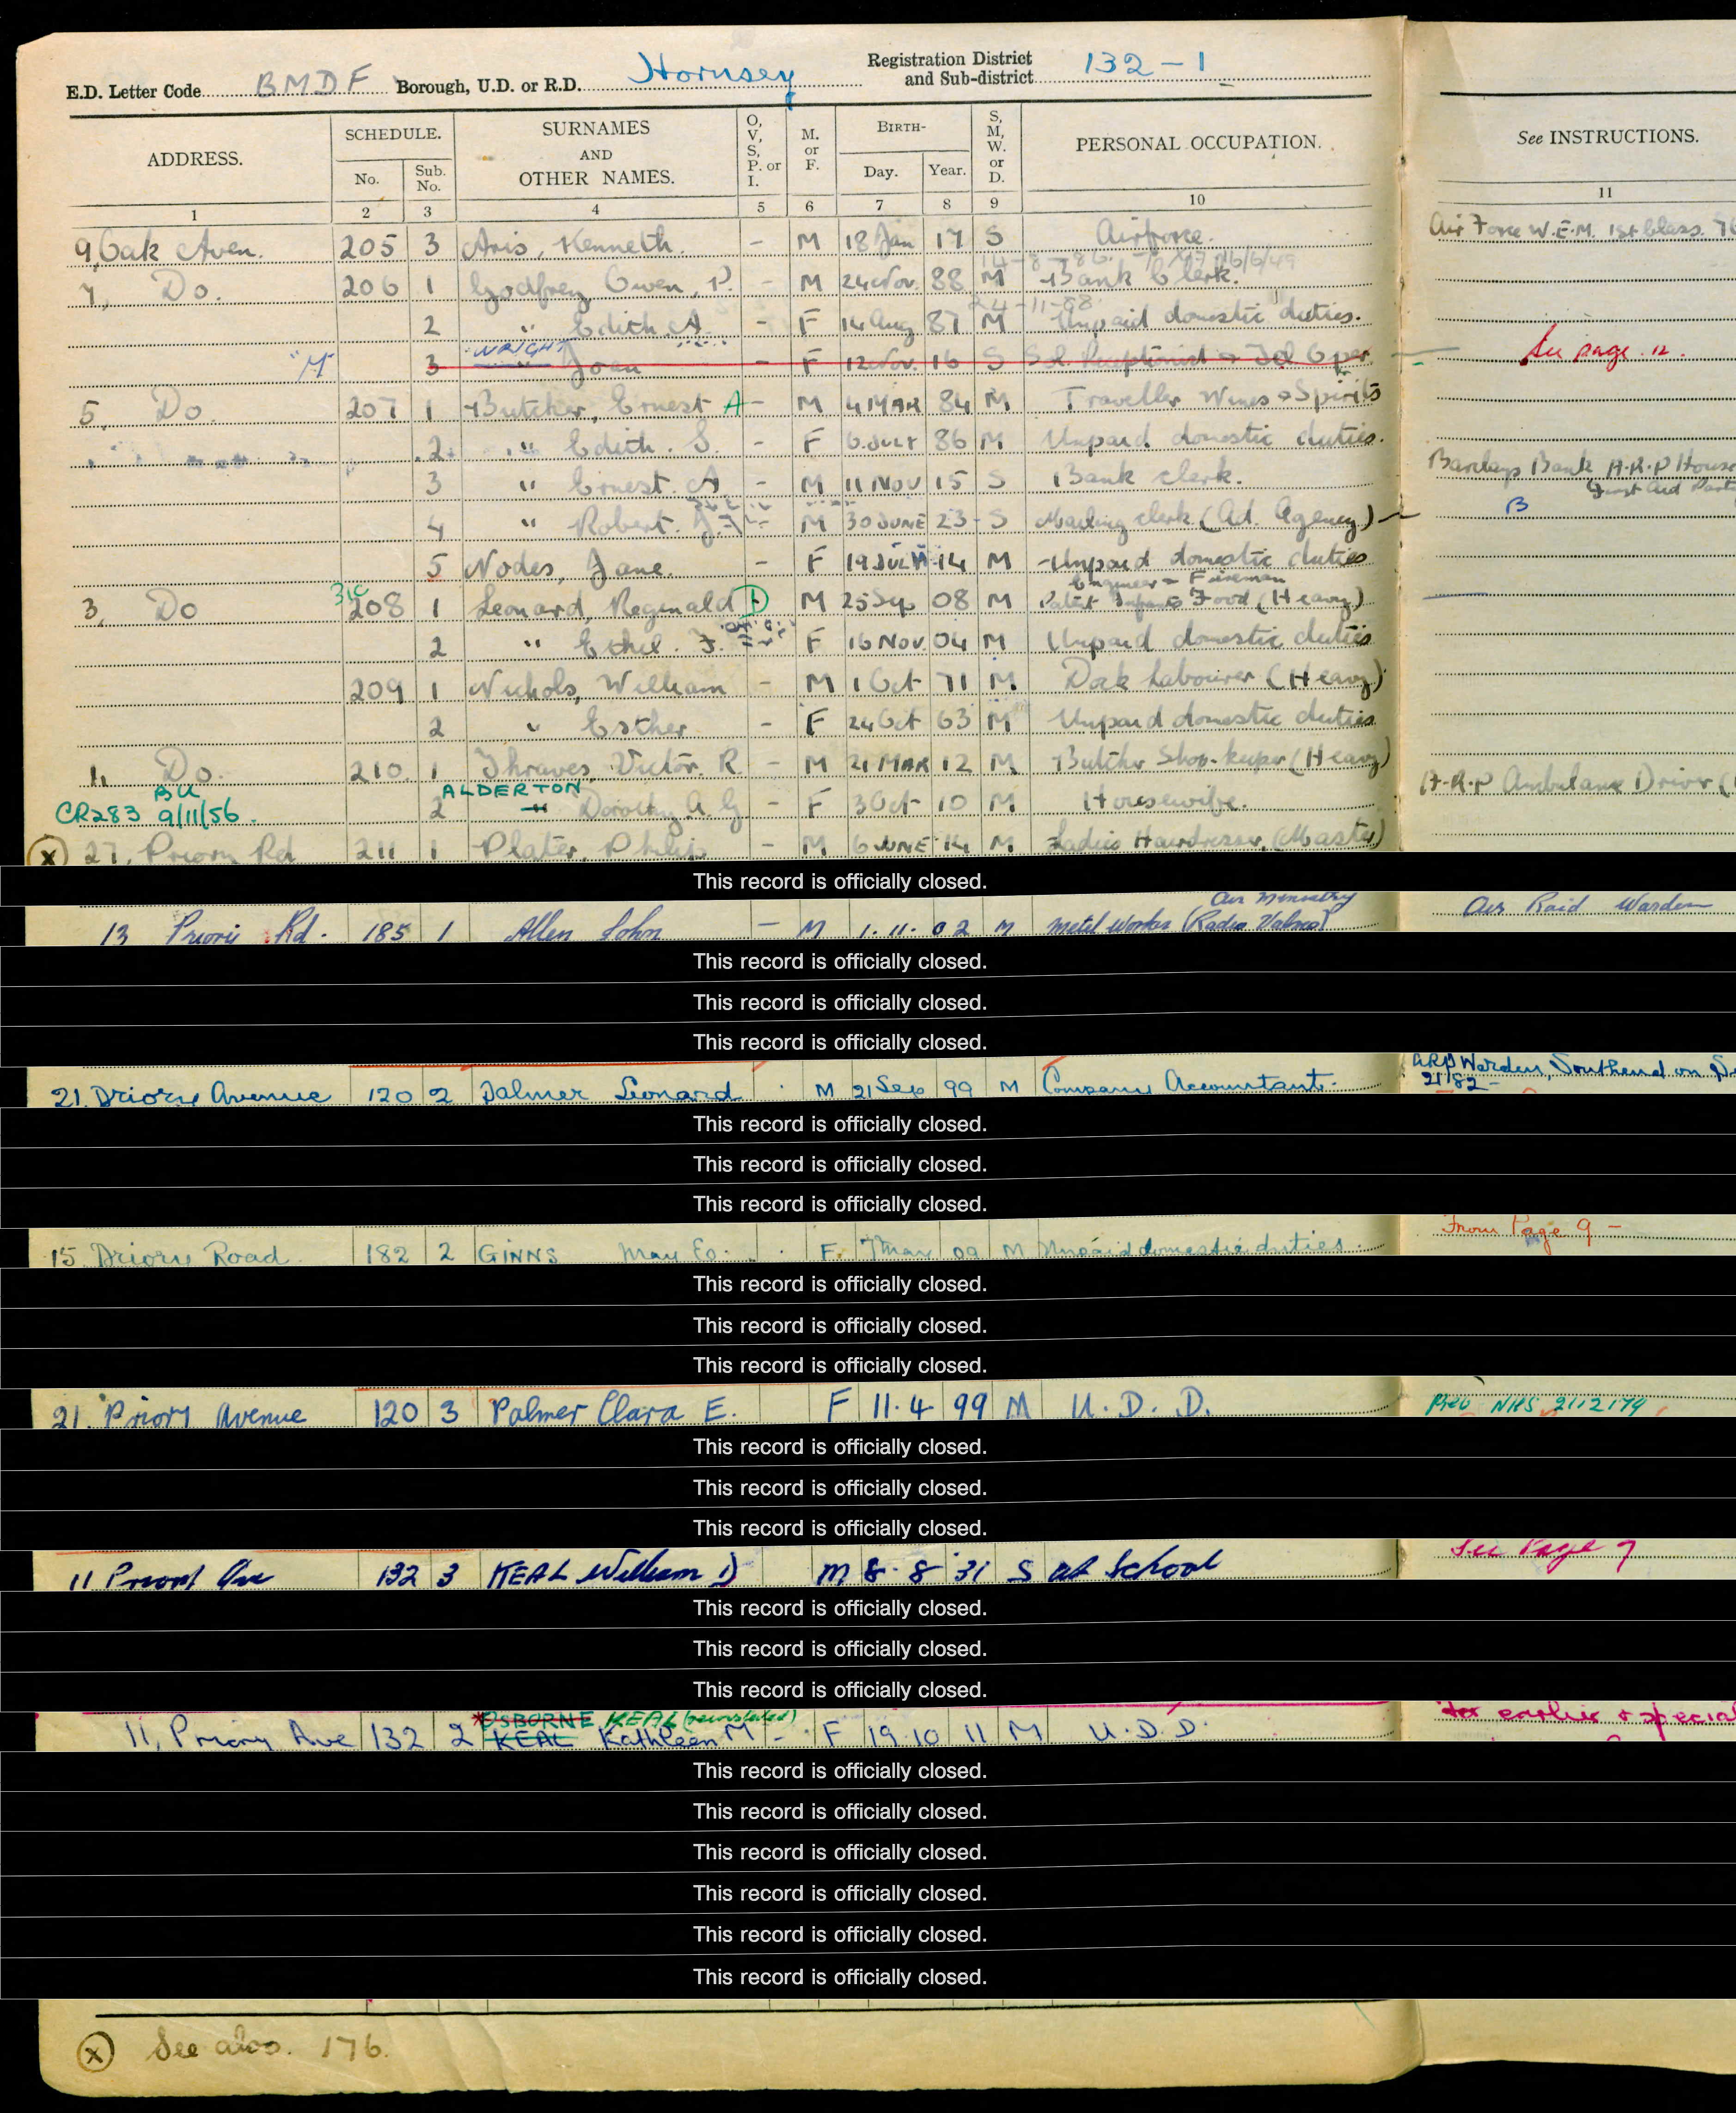 E.D. Letter Code BMDF Borough, U.D. or R.D. Hornsey Registration District and Sub-district 132-1
ADDRESS. SCHEDULE. No. Sub. No. SURNAMES AND OTHER NAMES. O, V, S, P. or I. M. or F. BIRTH- Day. Year. S, M, W. or D. PERSONAL OCCUPATION. See INSTRUCTIONS.
1 2 3 4 5 6 7 8 9 10 11
9, Oak Aven. 205 3 Aris, Kenneth. - M 18 Jan 17 S Airforce. Air Force W.E.M. 1st Class.
14-8-86 16/6/49
7, Do. 206 1 Godfrey Owen, P. - M 24 Nov. 88 M Bank Clerk.
24-11-88
2 " Edith A - F 14 Aug 87 M Unpaid domestic duties.
"M" WRIGHT
3 " Joan - F 12 Nov. 16 S See page 12.
5, Do. 207 1 Butcher, Ernest A - M 4 MAR 84 M Traveller Wines & Spirits
2 " Edith. S. - F 6 JULY 86 M Unpaid domestic duties.
3 " Ernest. A - M 11 NOV 15 S Bank clerk. Barclays Bank A.R.P House
First Aid
4 " Robert. J. - M 30 JUNE 23 S Mailing clerk (Ad. Agency) B
5 Nodes, Jane. - F 19 JULY 14 M Unpaid domestic duties
Engineer - Fireman
3, Do 31c 208 1 Leonard, Reginald D M 25 Sep 08 M Patent Food (Heavy)
2 " Ethel. F. - F 16 Nov. 04 M Unpaid domestic duties
209 1 Nichols, William - M 1 Oct 71 M. Dock Labourer (Heavy)
2 " Esther - F 24 Oct 63 M Unpaid domestic duties
1, Do. 210 1 Thraves, Victor. R. - M 21 MAR 12 M Butcher Shop-keeper (Heavy)
BU ALDERTON A.R.P Ambulance Driver
CR283 9/11/56. 2 " Dorothy A G - F 3 Oct 10 M Housewife.
X 27, Priory Rd 211 1 Plater, Philip - M 6 JUNE 14 M Ladies Hairdresser. (Master)
This record is officially closed.
Air Ministry
13 Priory Rd. 185 1 Allen John - M 1.11.02 M Metal Worker (Radio Valves) Air Raid Warden
This record is officially closed.
This record is officially closed.
This record is officially closed.
ARP Warden, Southend on
21. Priory Avenue 120 2 Palmer Leonard. M 21 Sep 99 M Company Accountant. 21/82-
This record is officially closed.
This record is officially closed.
This record is officially closed.
15 Priory Road. 182 2 GINNS May E. F. 7 Mar 09 M Unpaid domestic duties. From Page 9 -
This record is officially closed.
This record is officially closed.
This record is officially closed.
21. Priory Avenue 120 3 Palmer Clara E. F 11.4 99 M U.D.D. Prev NHS 2112179
This record is officially closed.
This record is officially closed.
This record is officially closed.
11 Priory Ave 132 3 KEAL William D M 8.8 31 S at School See Page 7
This record is officially closed.
This record is officially closed.
This record is officially closed.
*OSBORNE KEAL (reinstated) for earlier & special
11, Priory Ave 132 2 KEAL Kathleen M - F 19.10 11 M U.D.D.
This record is officially closed.
This record is officially closed.
This record is officially closed.
This record is officially closed.
This record is officially closed.
This record is officially closed.
X See also. 176.